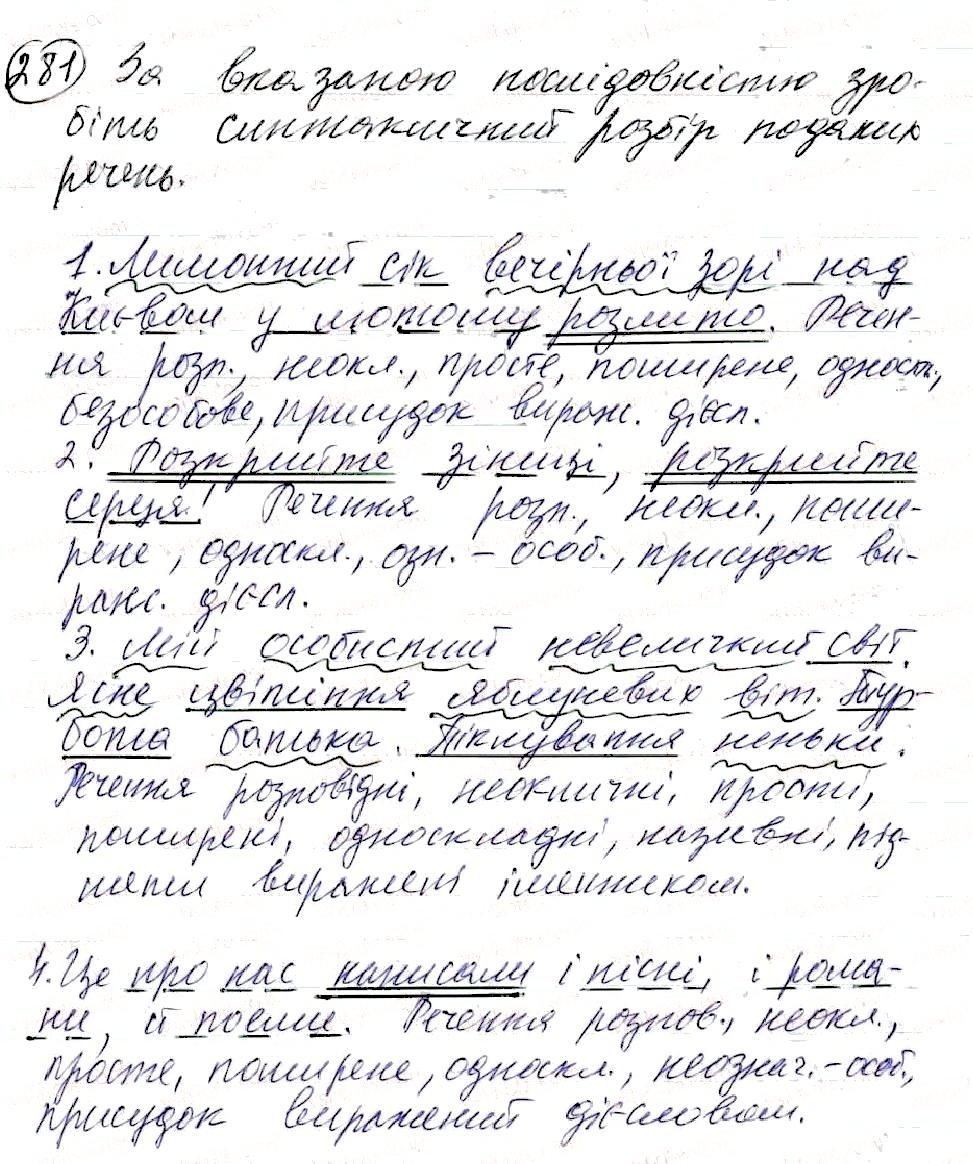 281 За вказаною послідовністю зро-
біть синтаксичний розбір поданих
речень.
1. Лимонний сік вечірньої зорі над
Києвом у лютому розлито. Речен-
ня розп., неокл., просте, поширене, одност.,
безособове, присудок вираж. дієсл.
2. Розкрийте зіниці, розкрийте
серця! Речення розп., неокл., поши-
рене, односкл., озн. - особ., присудок ви-
раж. дієсл.
3. Мій особистий невеличкий світ.
Ясне цвітіння яблуневих віт. Тур-
бота батька. Піклування неньки.
Речення розповідні, неокличні, прості,
поширені, односкладні, називні, під-
мети виражені іменником.
4. Це про нас написали і пісні, і рома-
ни, й поеми. Речення розпов., неокл.,
просте, поширене, односкл., неознач. - особ.,
присудок виражений дієсловом.